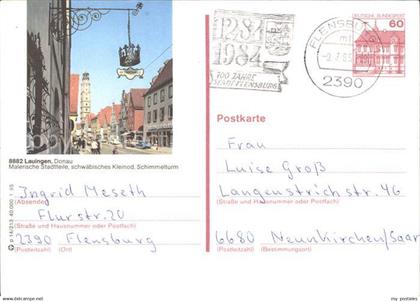 1284
1984
700 JAHRE
STADT FLENSBURG
FLENSBURG
2390
DEUTSCHE BUNDESPOST
60
8882 Lauingen, Donau
Malerische Stadtteile, schwäbisches Kleinod, Schimmelturm
Postkarte
Ingrid Meseth
(Absender)
Flurstr. 20
(Straße und Hausnummer oder Postfach)
2390 Flensburg
(Postleitzahl) (Ort)
Frau
Luise Groß
Langenstrichstr. 46
(Straße und Hausnummer oder Postfach)
6680 Neunkirchen/Saar
(Postleitzahl) (Bestimmungsort)